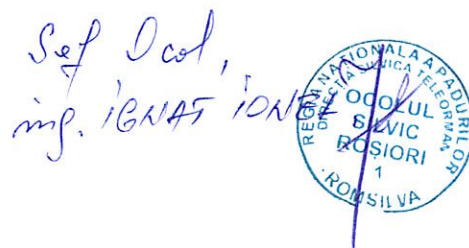 Șef Ocol,
ing. IGNAT IONEL
REGIA NAȚIONALA A PADURILOR
DIRECȚIA SILVICA TELEORMAN
OCOLUL
SILVIC
ROȘIORI
1
ROMSILVA